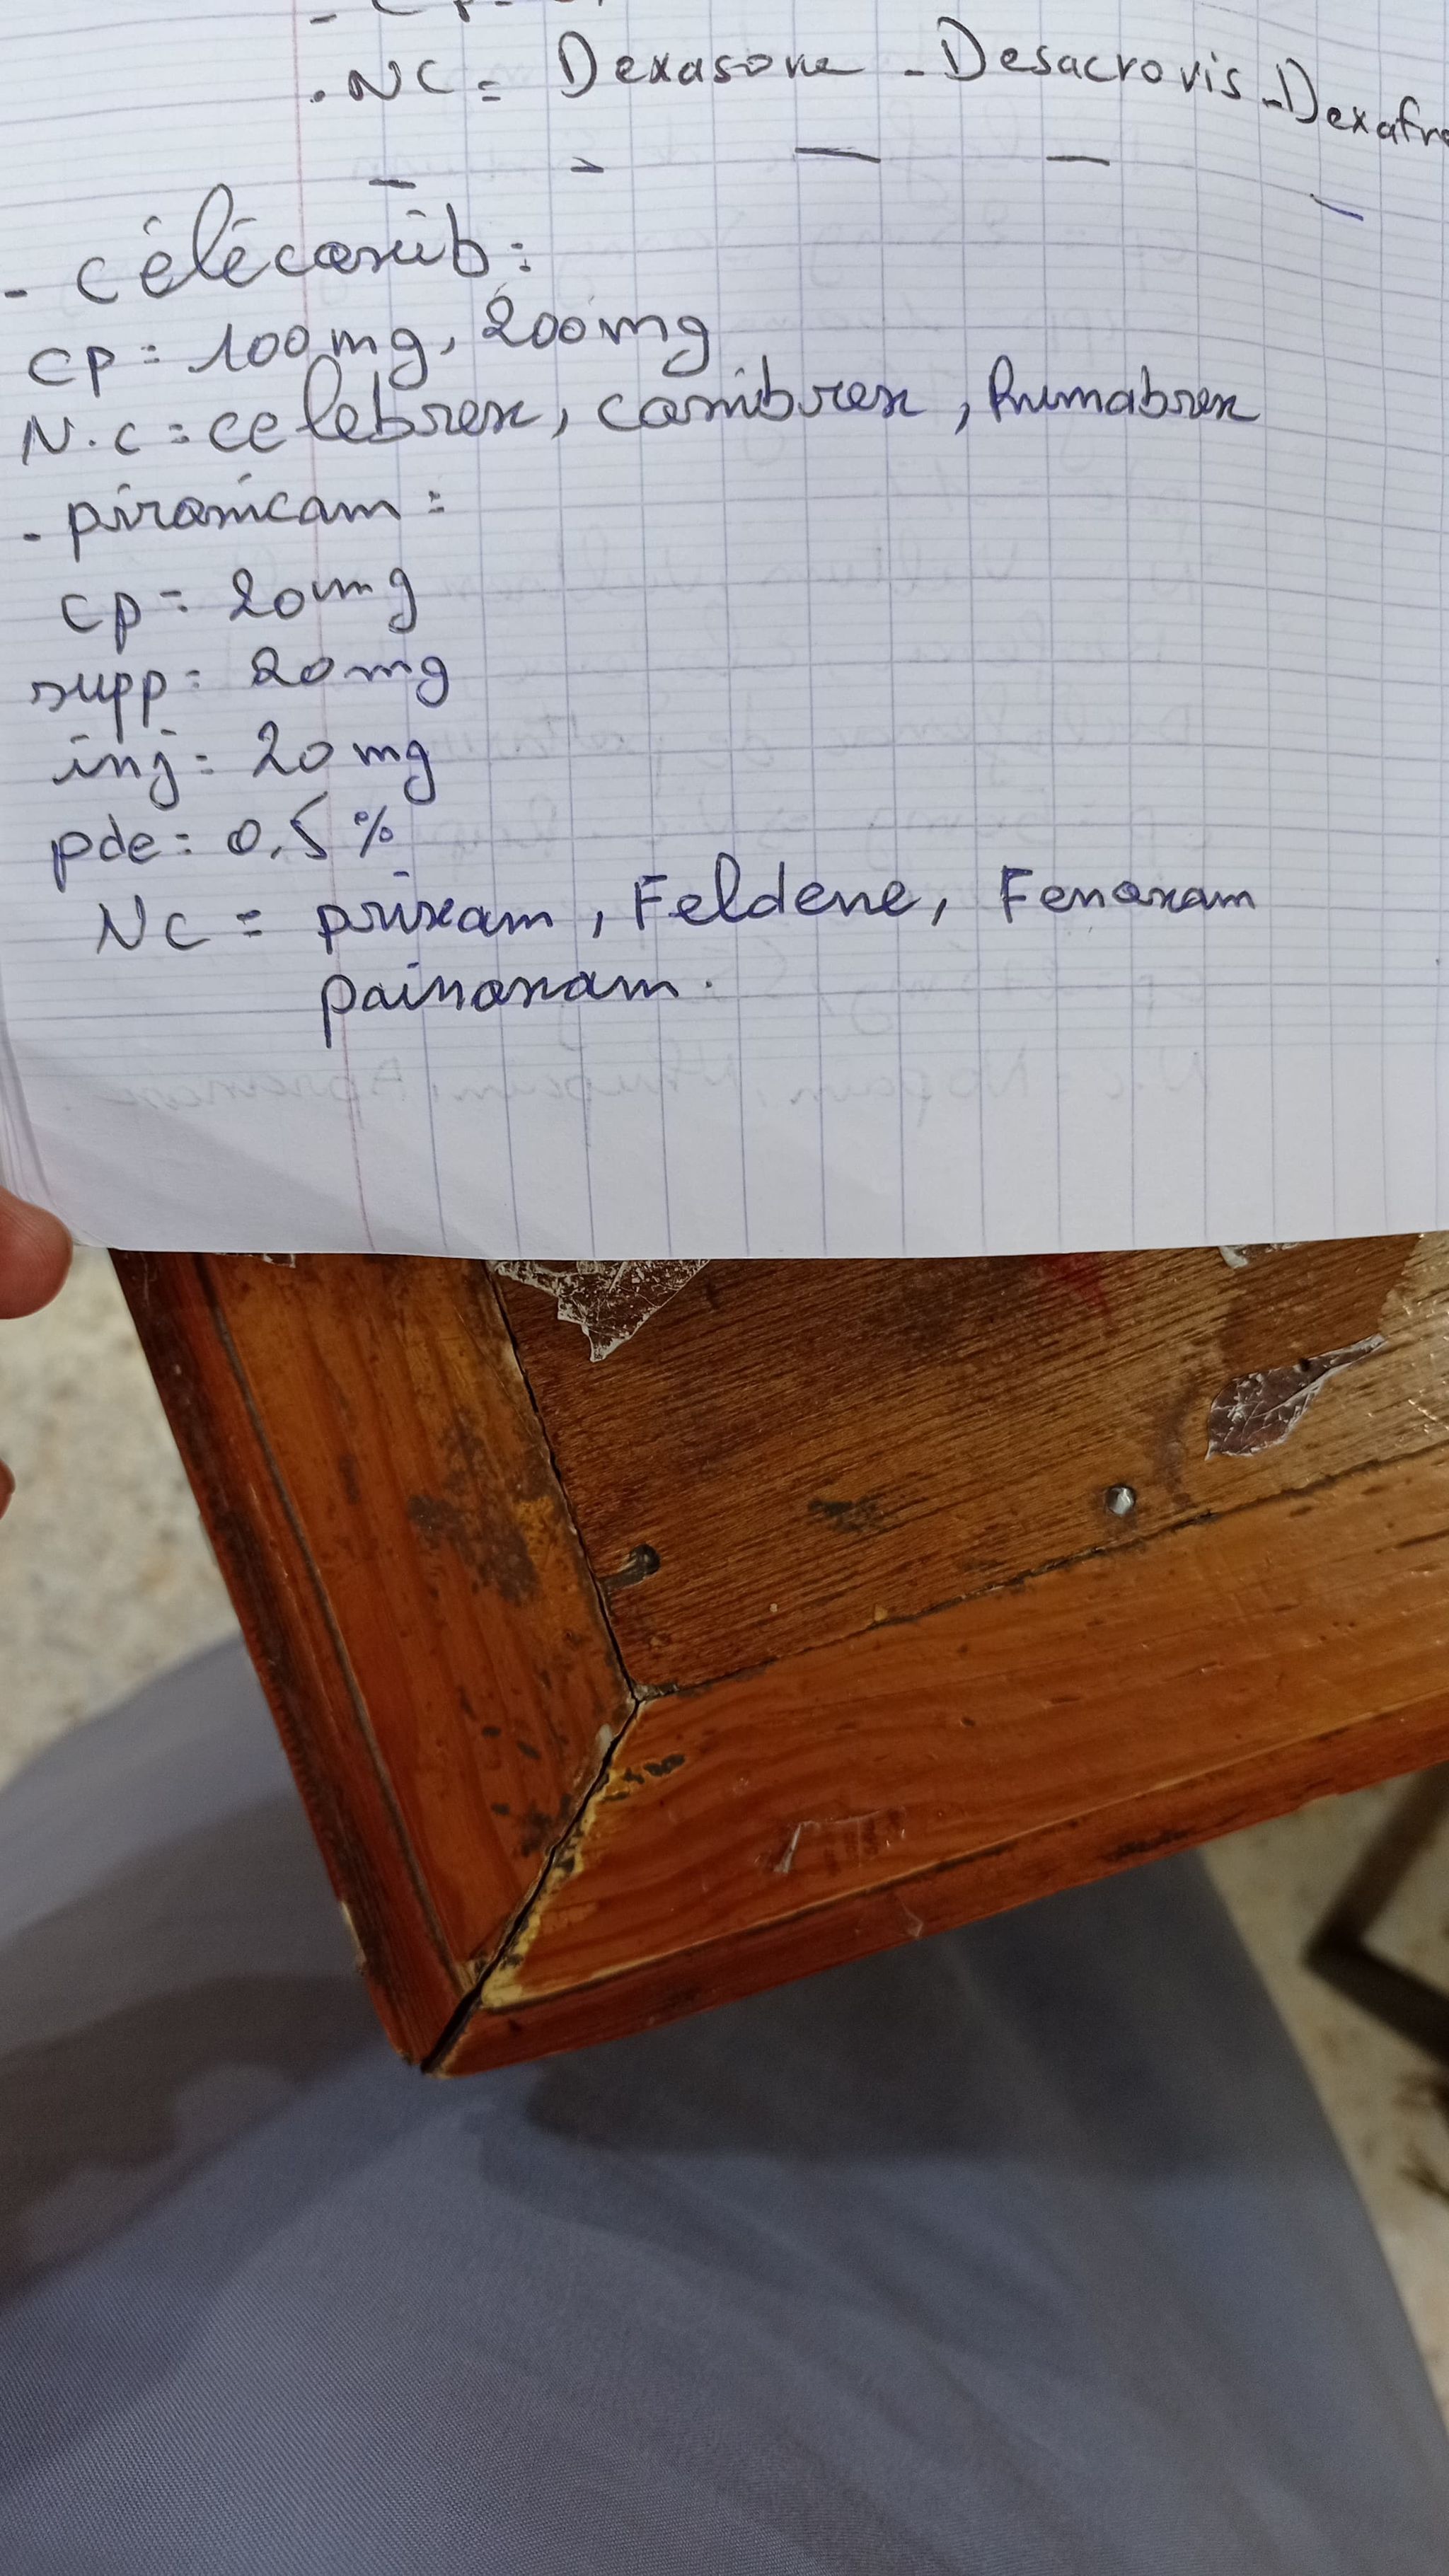 - Cp=
. NC = Dexasone - Desacrovis - Dexafr
- célécoxib :
cp = 100 mg, 200 mg
N.c = celebrex, coxibrex, Rumabrex
- piroxicam =
cp = 20 mg
supp = 20 mg
inj = 20 mg
pde = 0,5 %
NC = prixam, Feldene, Fenoxam
painoxam.